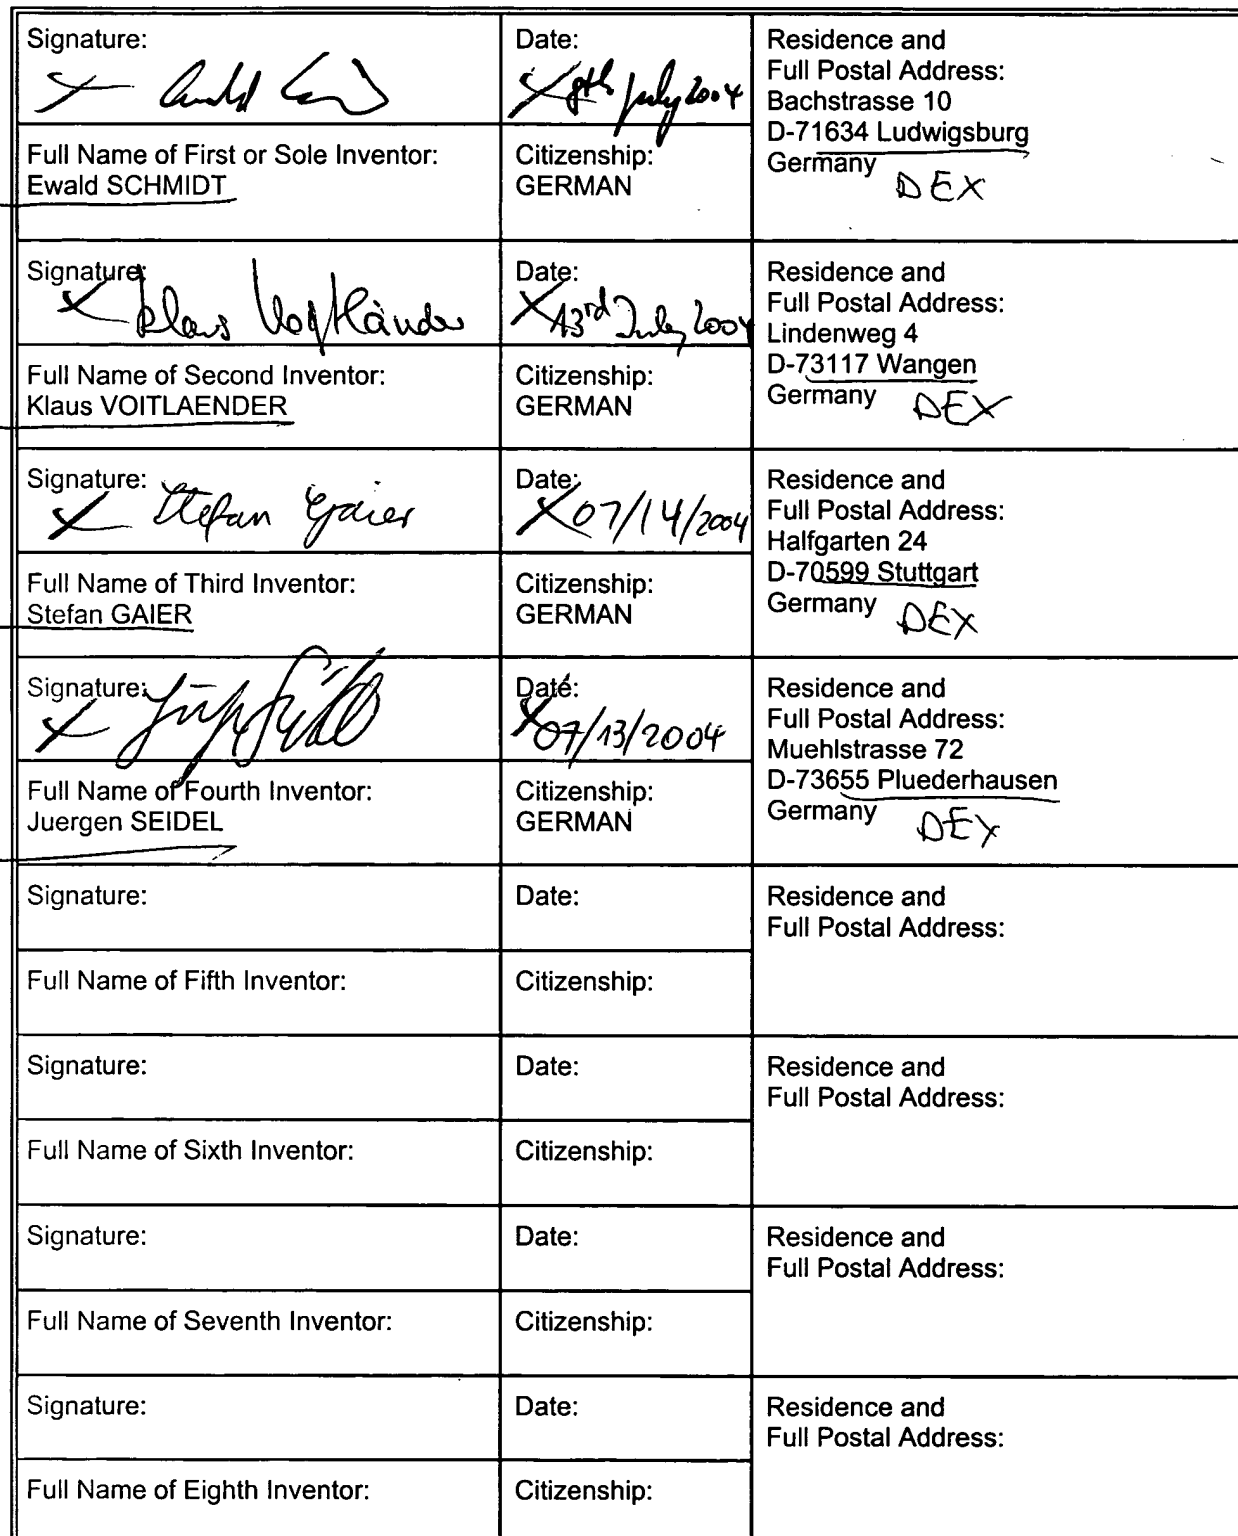 Signature:
Date:
Residence and
Full Postal Address:
Bachstrasse 10
D-71634 Ludwigsburg
Germany
DEX
8th July 2004
Full Name of First or Sole Inventor:
Ewald SCHMIDT
Citizenship:
GERMAN
Signature:
Klaus Voitländer
Date:
13rd July 2004
Residence and
Full Postal Address:
Lindenweg 4
D-73117 Wangen
Germany
DEX
Full Name of Second Inventor:
Klaus VOITLAENDER
Citizenship:
GERMAN
Signature:
Stefan Gaier
Date:
07/14/2004
Residence and
Full Postal Address:
Halfgarten 24
D-70599 Stuttgart
Germany
DEX
Full Name of Third Inventor:
Stefan GAIER
Citizenship:
GERMAN
Signature:
Date:
07/13/2004
Residence and
Full Postal Address:
Muehlstrasse 72
D-73655 Pluederhausen
Germany
DEX
Full Name of Fourth Inventor:
Juergen SEIDEL
Citizenship:
GERMAN
Signature:
Date:
Residence and
Full Postal Address:
Full Name of Fifth Inventor:
Citizenship:
Signature:
Date:
Residence and
Full Postal Address:
Full Name of Sixth Inventor:
Citizenship:
Signature:
Date:
Residence and
Full Postal Address:
Full Name of Seventh Inventor:
Citizenship:
Signature:
Date:
Residence and
Full Postal Address:
Full Name of Eighth Inventor:
Citizenship: